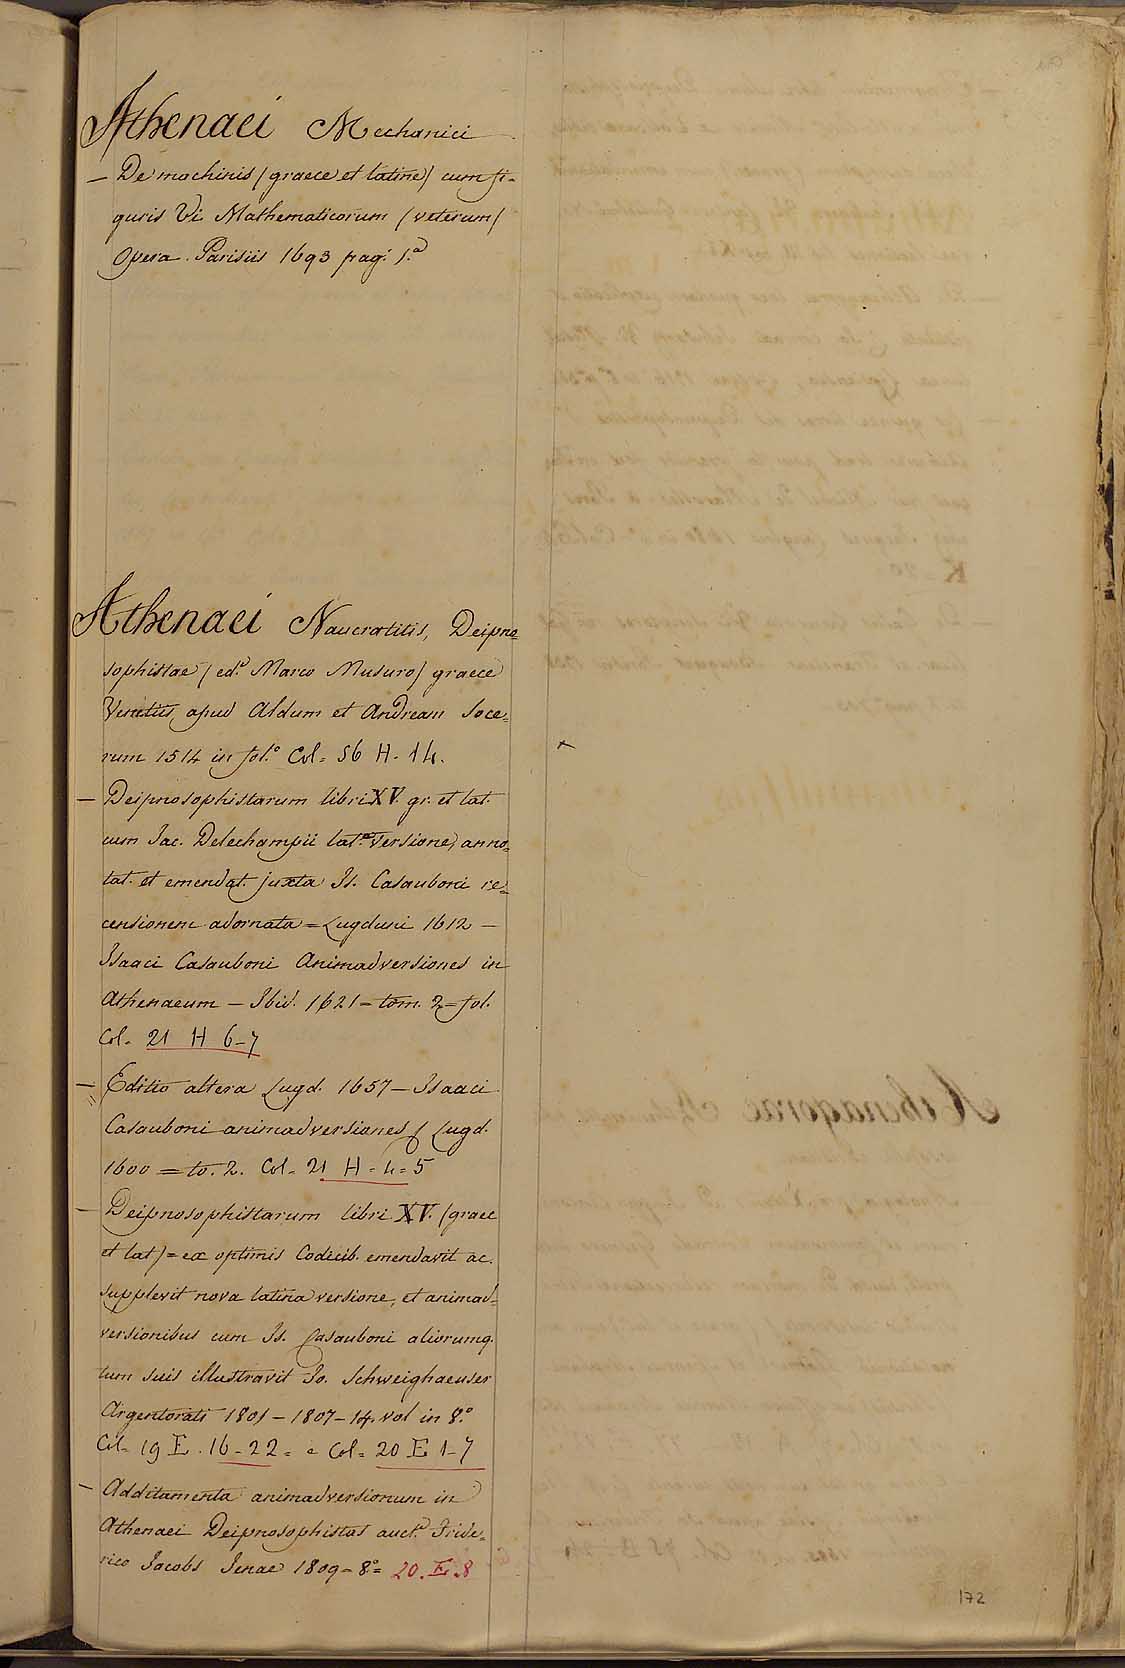 Athenaei Mechanici
— De machinis (graece et latine) cum fi-
guris Vi. Mathematicorum (veterum)
Opera. Parisiis 1693 pag. 1.ª
Athenaei Naucratitis, Deipno
sophistae (ed.e Marco Musuro) graece
Venetiis, apud Aldum et Andream Soce=
rum 1514 in fol.º Col= 56 H. 14.
— Deipnosophistarum libri XV. gr. et lat.
cum Jac. Delechampii lat.ª versione, anno=
tat. et emendat. juxta Is. Casauboni re=
censionem adornata = Lugduni 1612 —
Isaaci Casauboni Animadversiones in
Athenaeum — Ibid. 1621 — tom. 2 = fol.
Col= 21 H 6-7
— Editio altera Lugd. 1657 — Isaaci
Casauboni animadversiones Lugd.
1600 = to. 2. Col= 21 H = 4=5
— Deipnosophistarum libri XV. (graec
et lat) = ex optimis Codicib. emendavit ac.
supplevit nova latina versione, et animad=
versionibus cum Is. Casauboni aliorumq.
tum suis illustravit Jo. Schweighaeuser
Argentorati 1801 — 1807 — 14. vol in 8.º
Col= 19 E. 16-22 = e Col= 20 E 1-7
— Additamenta animadversionum in
Athenaei Deipnosophistas auct.e Fride=
rico Jacobs Jenae 1809 = 8.º = 20. E. 8
172